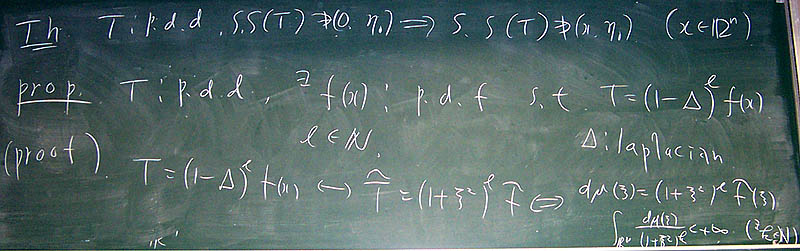 Th. T : p.d.d, S.S(T) ∌ (0, η₀) ⟹ S.S(T) ∌ (x, η₀) (x ∈ ℝⁿ)
prop. T : p.d.d., ∃f(x) : p.d.f s.t. T = (1-Δ)^ℓ f(x)
ℓ ∈ ℕ. Δ : laplacian
(proof). T = (1-Δ)^ℓ f(x) ↔ T̂ = (1+ξ²)^ℓ f̂ ⇔ dμ(ξ) = (1+ξ²)^ℓ f̂(ξ)
∫_{ℝⁿ} dμ(ξ)/(1+ξ²)^ℓ < +∞ (∃ℓ ∈ ℕ)